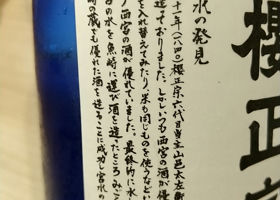 水の発見
十一年(一八四〇)櫻正宗六代目当主山邑太左衛
造っておりました。しかしいつも西宮の酒が優
を入れ替えてみたり、米も同じものを使うなどい
り西宮の酒が優れていました。最終的に水
宮の水を魚崎に運び酒を造ったところみご
崎の蔵でも優れた酒を造ることに成功し宮水の
櫻正宗